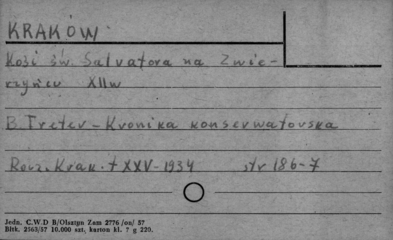 KRAKÓW
Kośc św. Salvatora na Zwie-
rzyńcu XIIw
B. Treter - Kronika konserwatorska
Rocz. Krak. t XXV - 1934 str 186-7
Jedn. C.W.D B/Olsztyn Zam 2776 /on/ 57
Bltk. 2163/57 10.000 szt, karton kl. ? g 220.